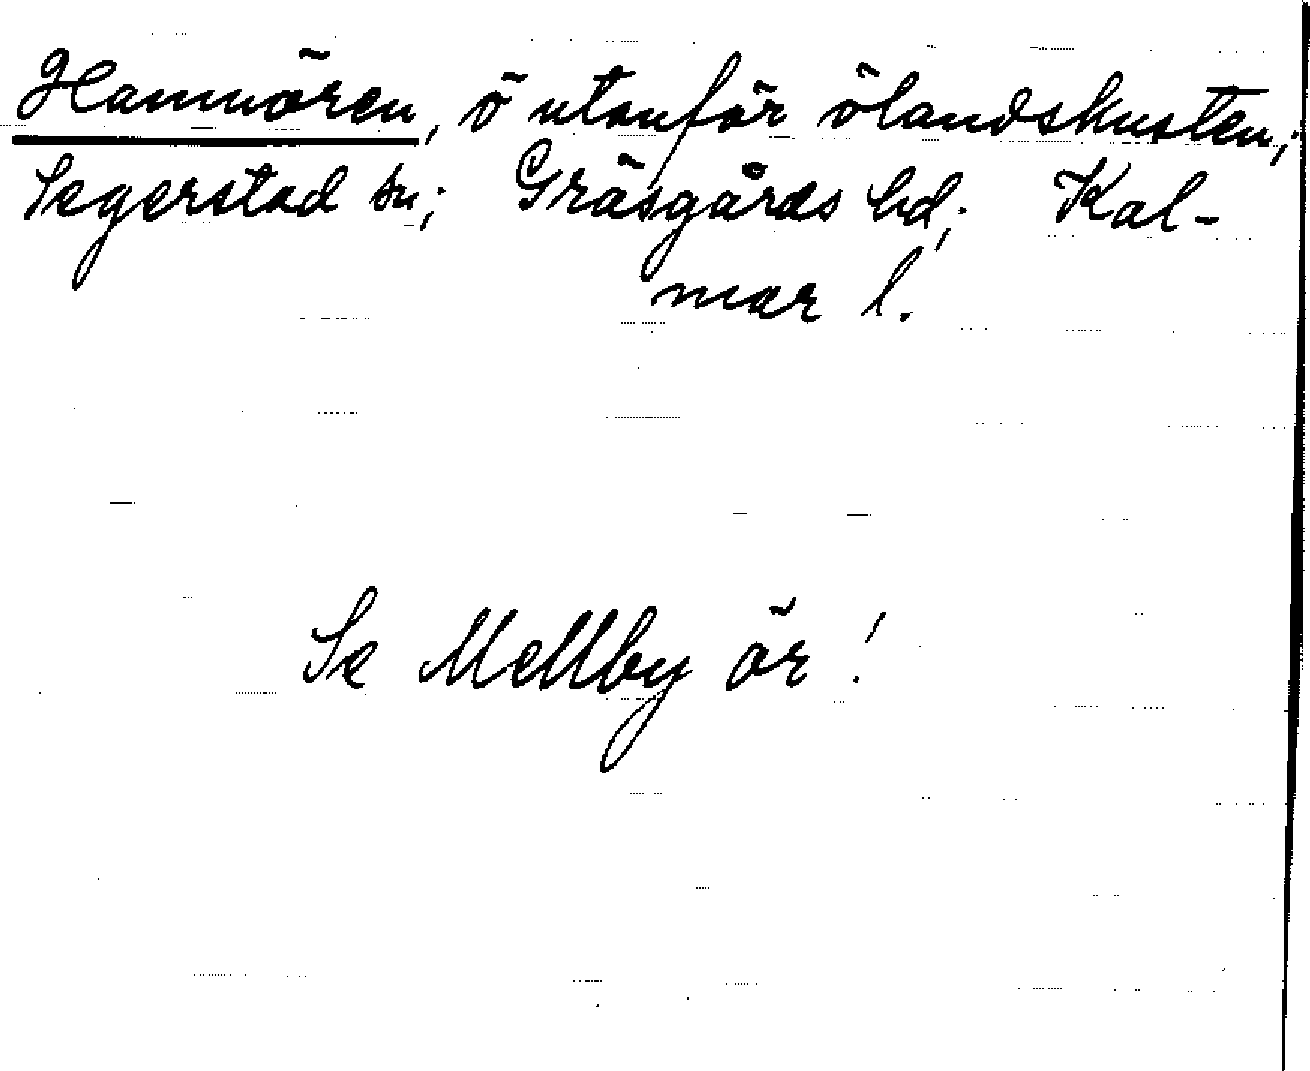 Hamnören, ö utanför ölandskusten,;
Segerstad sn; Gräsgårds hd; Kal-
mar l.
Se Mellby ör!